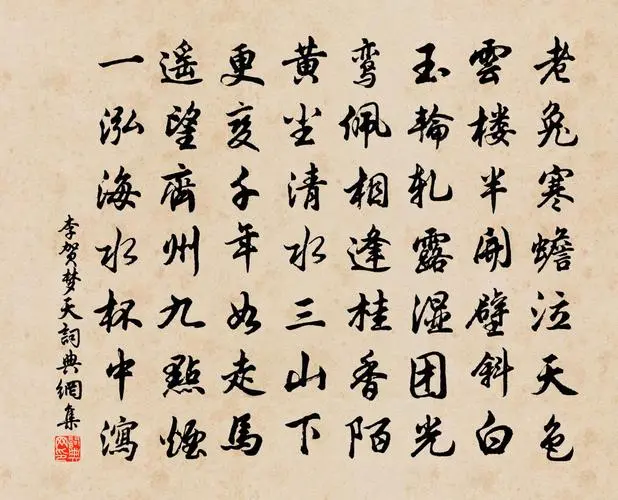 老兔寒蟾泣天色
雲楼半開壁斜白
玉輪軋露濕团光
鸾佩相逢桂香陌
黄尘清水三山下
更变千年如走馬
遥望齊州九點烟
一泓海水杯中瀉
李贺梦天詞典網集